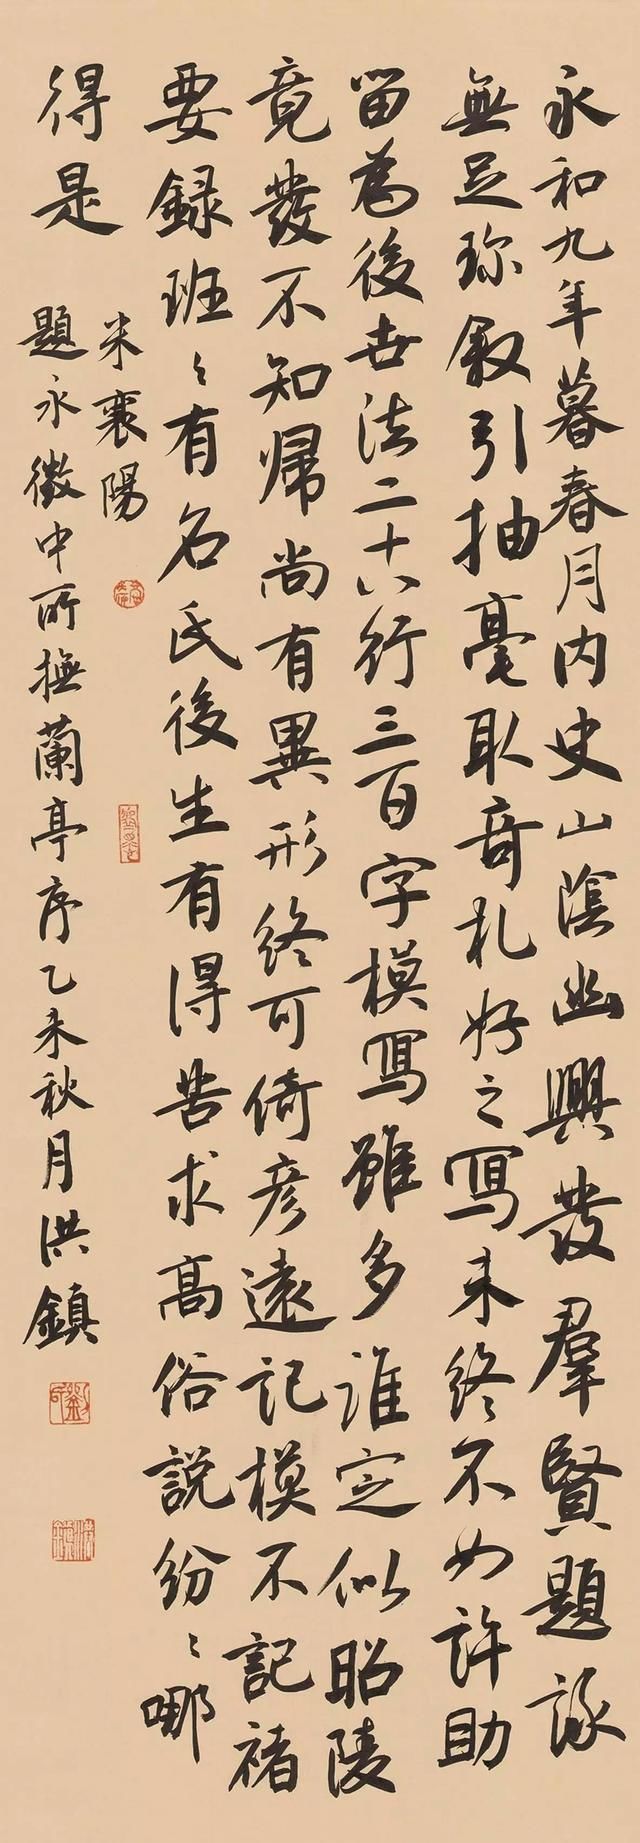 永和九年暮春月内史山陰幽興發羣賢題詠
無足珍叙引抽毫取奇札好之寫来終不如許助
留為後世法二十八行三百字模寫雖多誰定似昭陵
竟發不知歸尚有異形終可倚彦遠記模不記褚
要録班〻有名氏後生有得苦求高俗説紛〻哪
得是
米襄陽
題永徽中所撫蘭亭序乙未秋月洪鎮